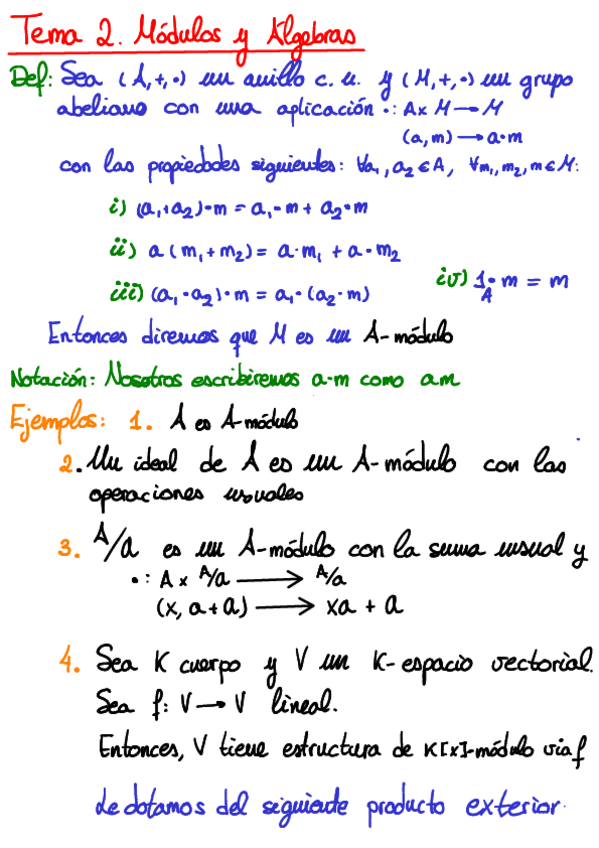 Tema 2. Módulos y Álgebras
Def: Sea (A,+,·) un anillo c. u. y (M,+,·) un grupo
abeliano con una aplicación ·: A x M → M
(a,m) → a·m
con las propiedades siguientes: ∀a₁,a₂ ∈ A, ∀m₁,m₂,m ∈ M:
i) (a₁+a₂)·m = a₁·m + a₂·m
ii) a(m₁+m₂) = a·m₁ + a·m₂
iii) (a₁·a₂)·m = a₁·(a₂·m) iv) 1_A·m = m
Entonces diremos que M es un A-módulo
Notación: Nosotros escribiremos a·m como am
Ejemplos: 1. A es A-módulo
2. Un ideal de A es un A-módulo con las
operaciones usuales
3. A/a es un A-módulo con la suma usual y
·: A x A/a → A/a
(x, a+a) → xa + a
4. Sea K cuerpo y V un K-espacio vectorial.
Sea f: V → V lineal.
Entonces, V tiene estructura de K[x]-módulo via f
Le dotamos del siguiente producto exterior.